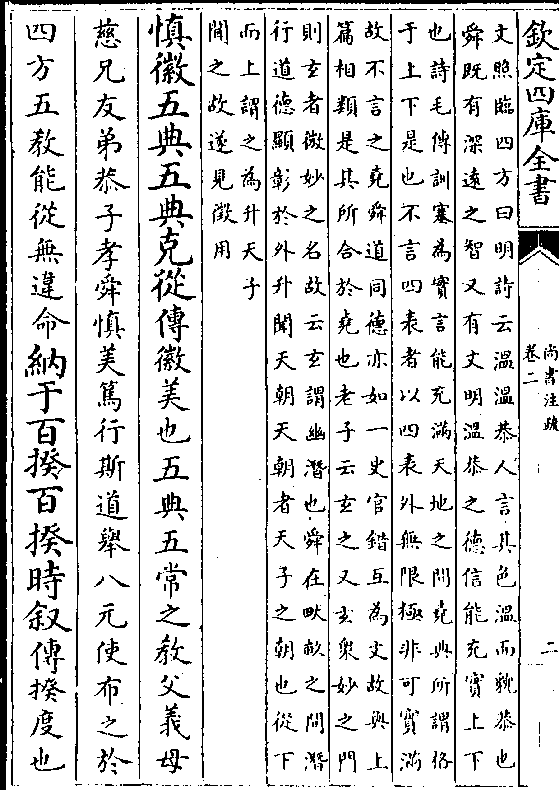 欽定四庫全書
尚書注疏
卷二
二
文照臨四方曰明詩云溫溫恭人言其色溫而貌恭也
舜既有深遠之智又有文明溫恭之德信能充實上下
也詩毛傳訓塞為實言能充滿天地之間堯典所謂格
于上下是也不言四表者以四表外無限極非可實滿
故不言之堯舜道同德亦如一史官錯互為文故與上
篇相類是其所合於堯也老子云玄之又玄衆妙之門
則玄者微妙之名故云玄謂幽潛也舜在畎畝之間潛
行道德顯彰於外升聞天朝天朝者天子之朝也從下
而上謂之為升天子
聞之故遂見徵用
慎徽五典五典克從傳徽美也五典五常之教父義母
慈兄友弟恭子孝舜慎美篤行斯道舉八元使布之於
四方五教能從無違命納于百揆百揆時叙傳揆度也